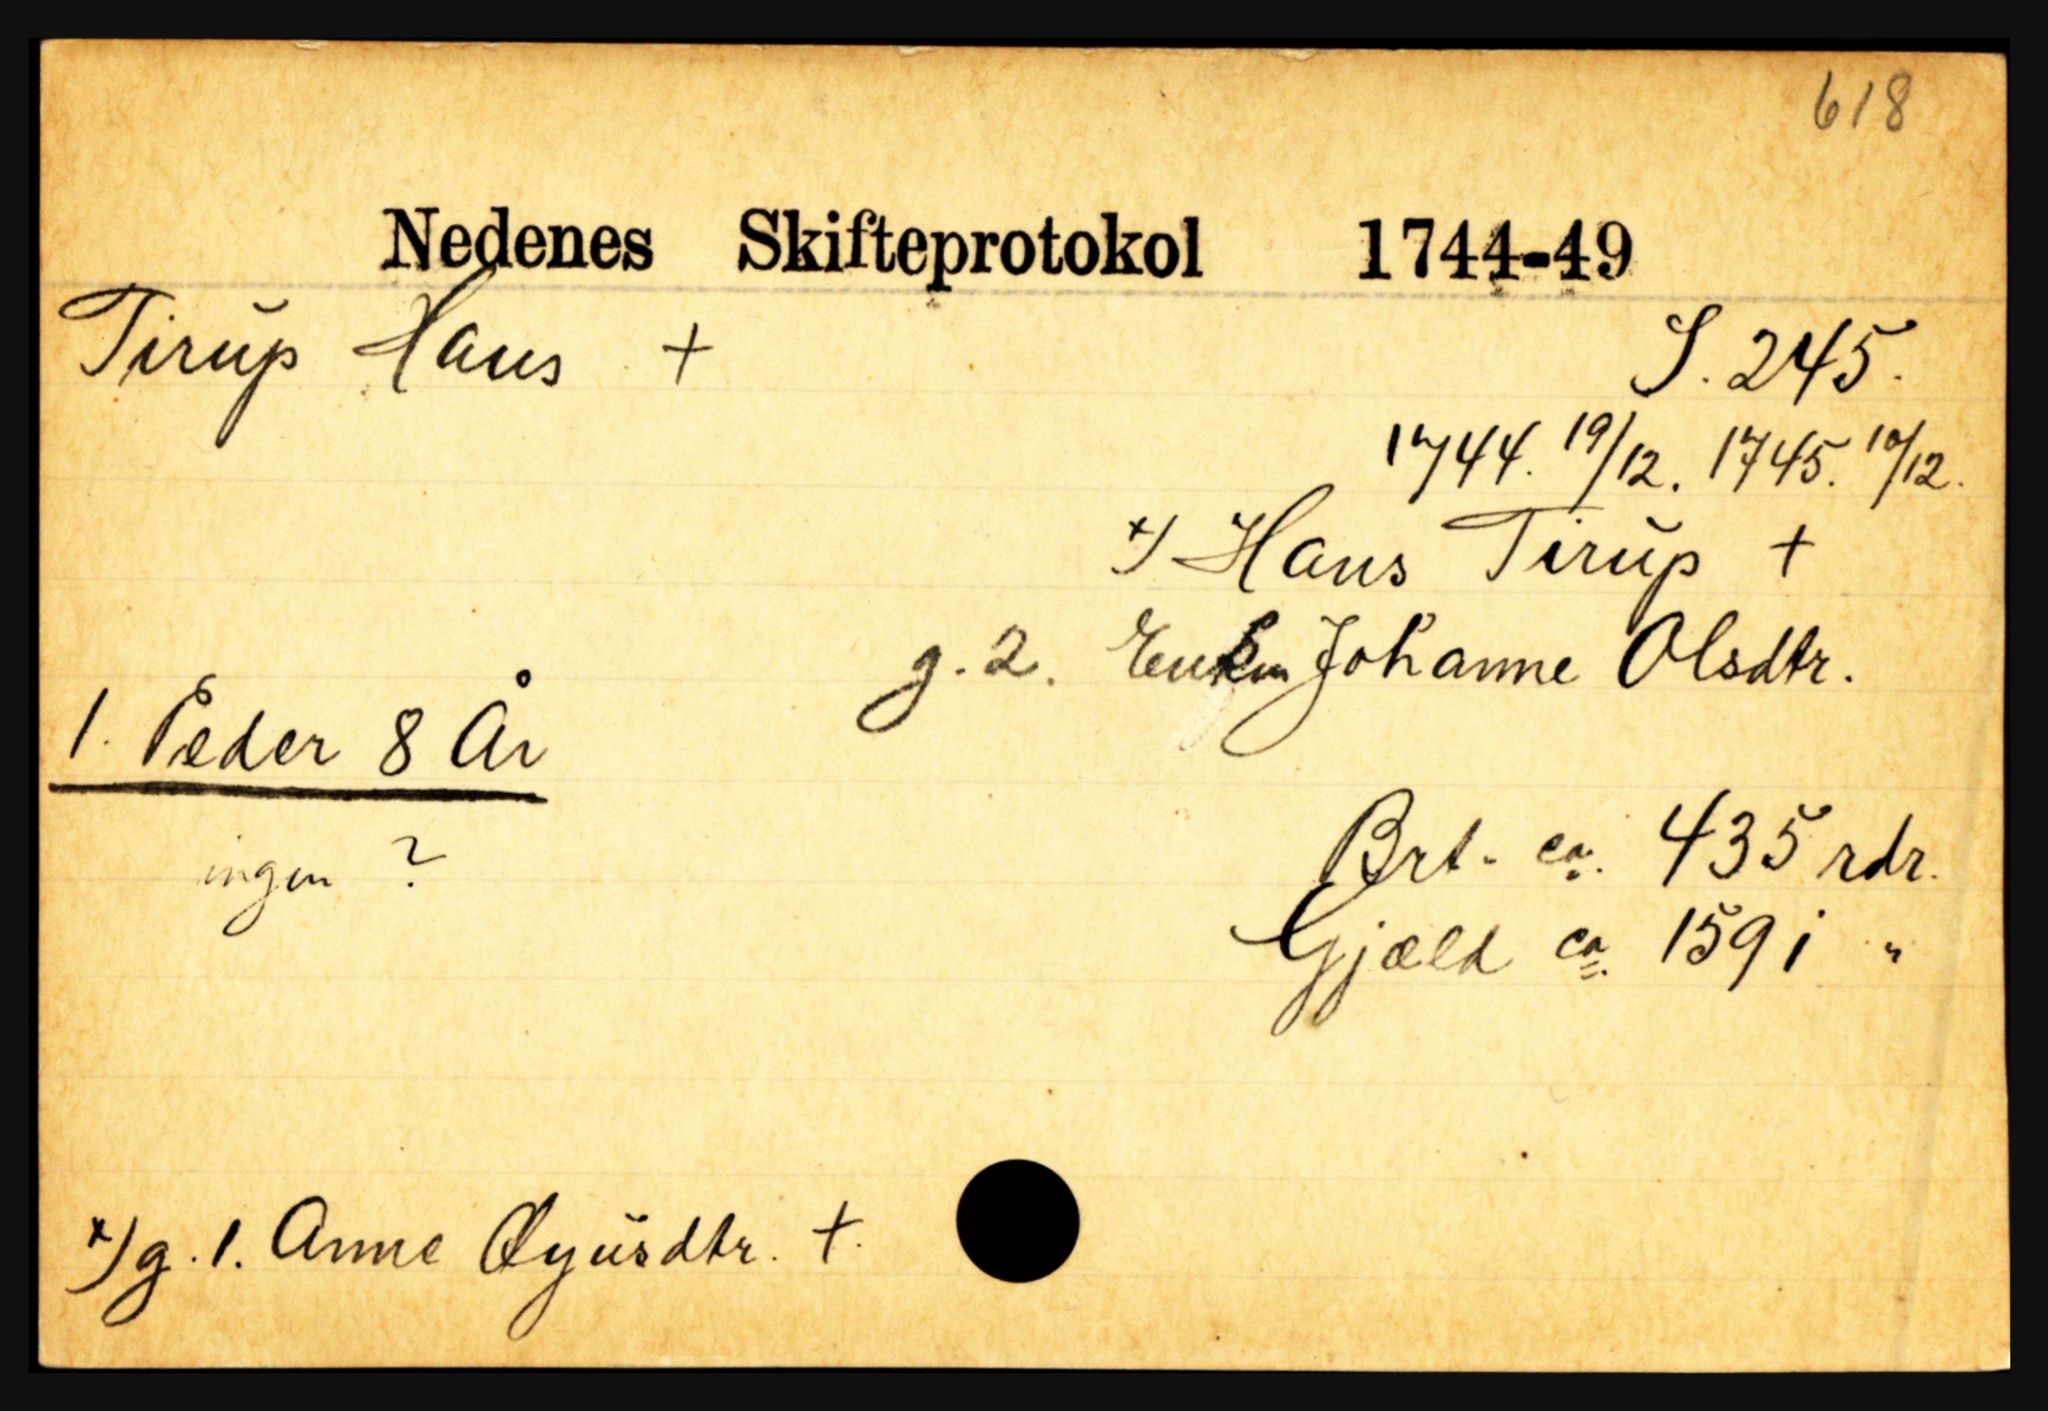 618
Nedenes Skifteprotokol 1744-49
Tirup Hans +
S. 245.
1744. 19/12. 1745. 10/12.
x) Hans Tirup +
g. 2. Enken Johanne Olsdtr.
1. Peder 8 År
ingen ?
Brt. ca. 435 rdr.
Gjæld ca. 1591 "
x) g. 1. Anne Øyusdtr. +.